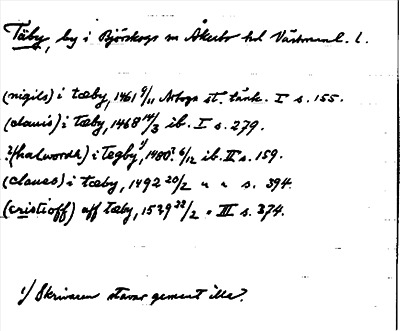 Täby, by i Björskogs sn Åkerbo hd Västmanl. l.
(nigils) i tæby, 1461 9/11 Arboga st. tänk. I s. 155.
(clauis) i tæby, 1468 14/3 ib. I s. 279.
?(halwordh) i Tegby,¹⁾ 1480? 6/12 ib. II s. 159.
(claues) i tæby, 1492 20/2 " " s. 394.
(cristioff) aff tæby, 1529 22/2 " III s. 374.
¹⁾ Skrivaren stavar genent illa?